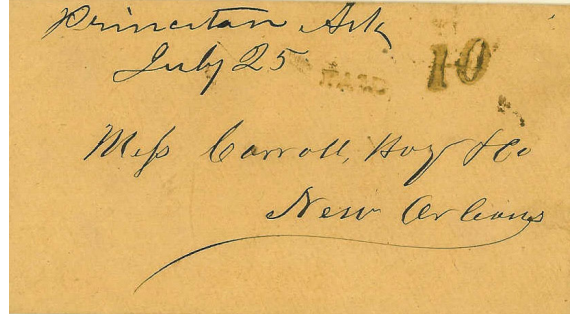 Princeton Ark
July 25 PAID 10
Mess Carroll, Hoy & Co
New Orleans